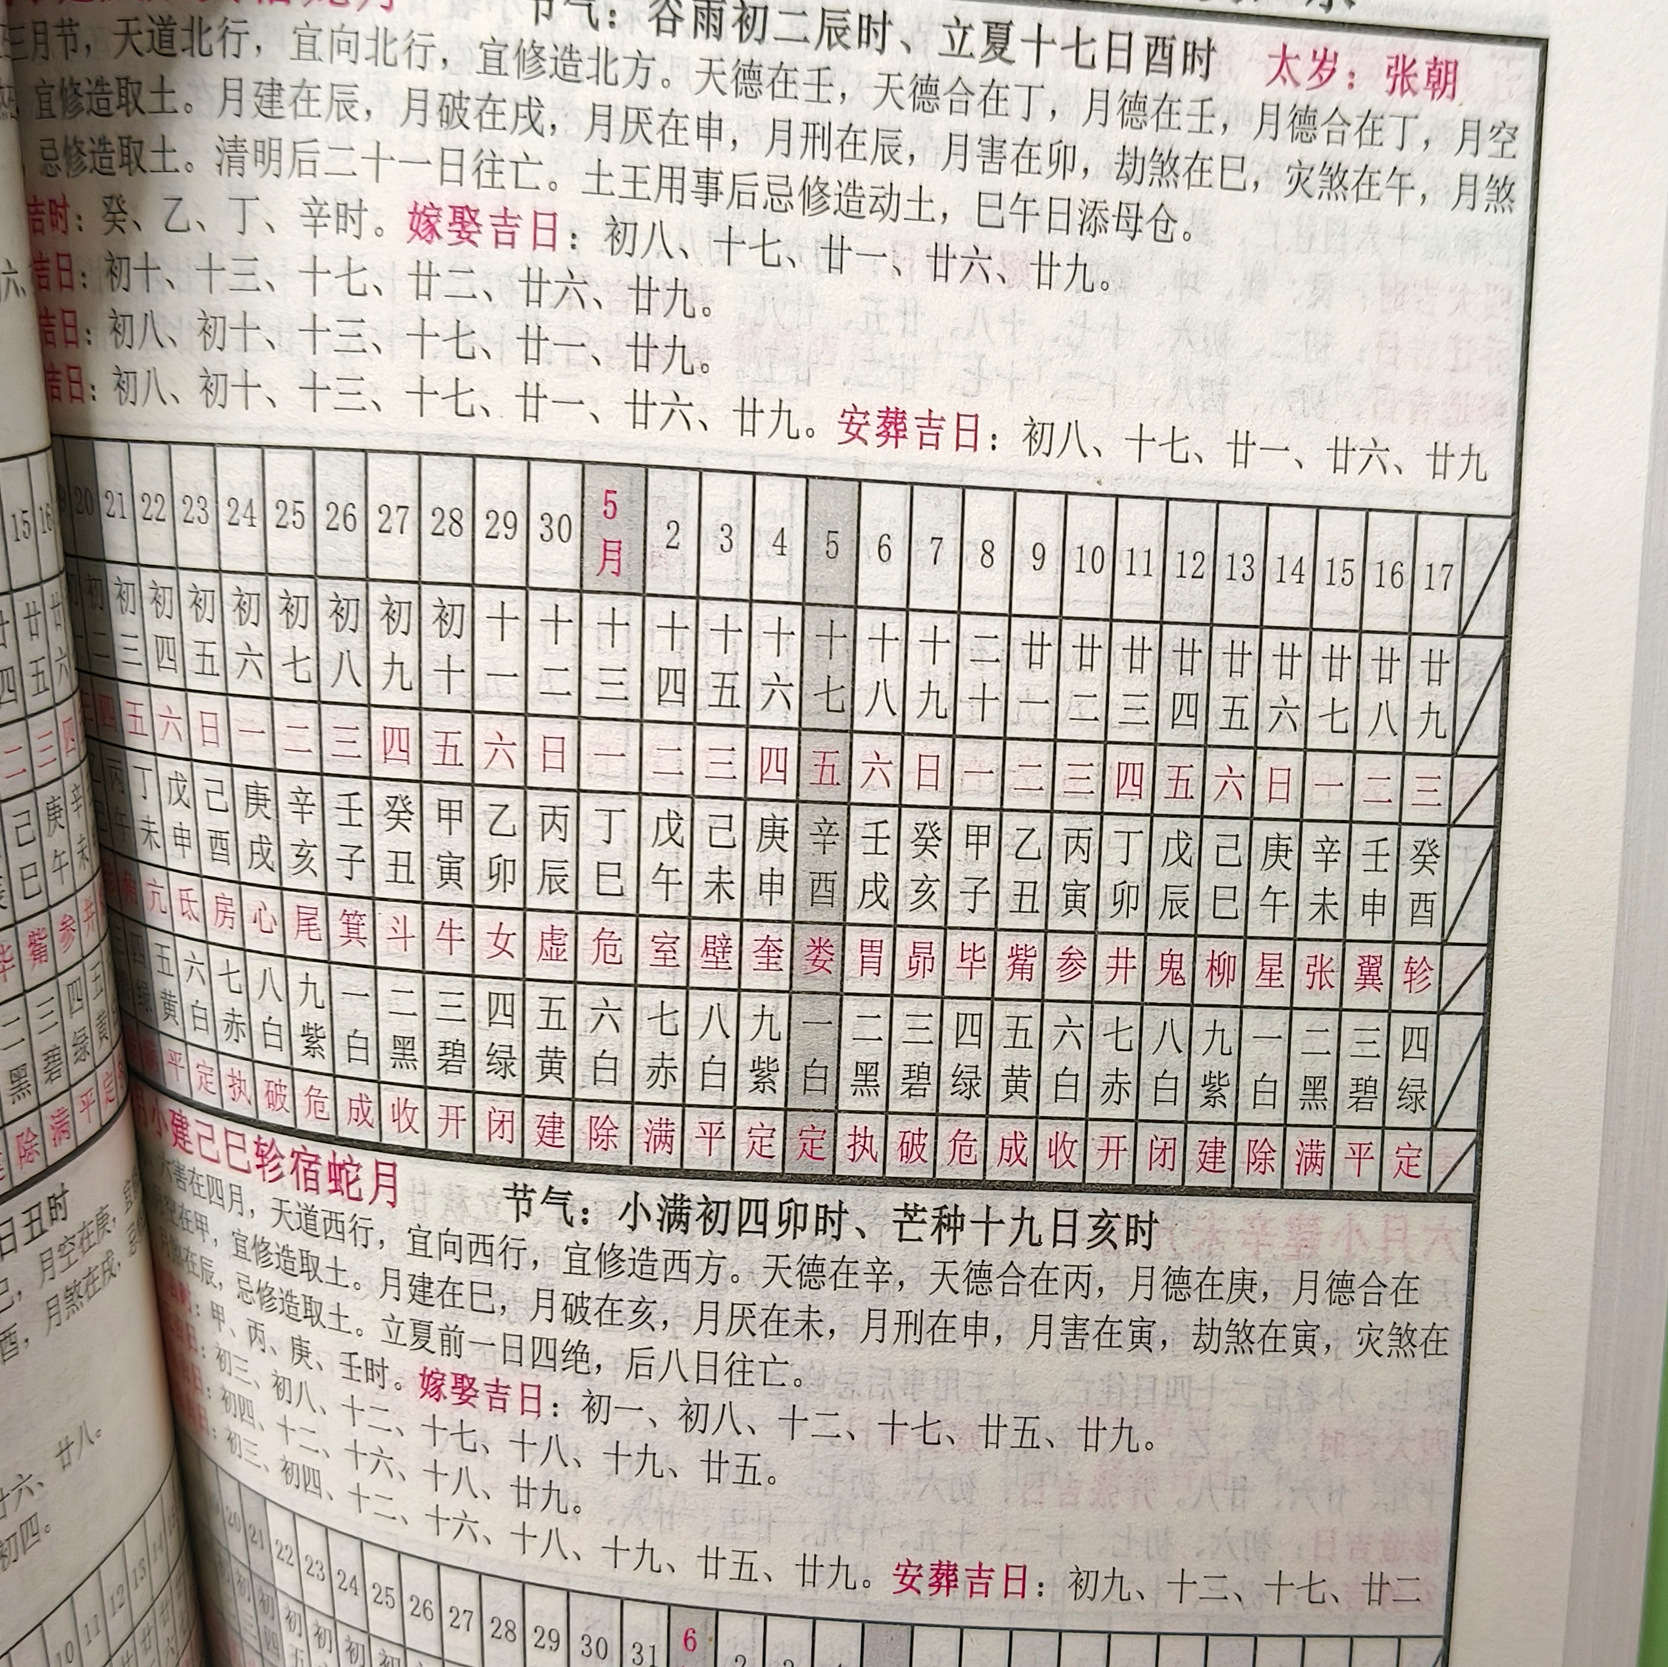 节气：谷雨初二辰时、立夏十七日酉时 太岁：张朝
三月节，天道北行，宜向北行，宜修造北方。天德在壬，天德合在丁，月德在壬，月德合在丁，月空
宜修造取土。月建在辰，月破在戌，月厌在申，月刑在辰，月害在卯，劫煞在巳，灾煞在午，月煞
忌修造取土。清明后二十一日往亡。土王用事后忌修造动土，巳午日添母仓。
吉时：癸、乙、丁、辛时。嫁娶吉日：初八、十七、廿一、廿六、廿九。
吉日：初十、十三、十七、廿二、廿六、廿九。
吉日：初八、初十、十三、十七、廿一、廿九。
吉日：初八、初十、十三、十七、廿一、廿六、廿九。安葬吉日：初八、十七、廿一、廿六、廿九
20 21 22 23 24 25 26 27 28 29 30 5月 2 3 4 5 6 7 8 9 10 11 12 13 14 15 16 17
初二 初三 初四 初五 初六 初七 初八 初九 初十 十一 十二 十三 十四 十五 十六 十七 十八 十九 二十 廿一 廿二 廿三 廿四 廿五 廿六 廿七 廿八 廿九
四 五 六 日 一 二 三 四 五 六 日 一 二 三 四 五 六 日 一 二 三 四 五 六 日 一 二 三
丙午 丁未 戊申 己酉 庚戌 辛亥 壬子 癸丑 甲寅 乙卯 丙辰 丁巳 戊午 己未 庚申 辛酉 壬戌 癸亥 甲子 乙丑 丙寅 丁卯 戊辰 己巳 庚午 辛未 壬申 癸酉
亢 氐 房 心 尾 箕 斗 牛 女 虚 危 室 壁 奎 娄 胃 昴 毕 觜 参 井 鬼 柳 星 张 翼 轸
五黄 六白 七赤 八白 九紫 一白 二黑 三碧 四绿 五黄 六白 七赤 八白 九紫 一白 二黑 三碧 四绿 五黄 六白 七赤 八白 九紫 一白 二黑 三碧 四绿
平 定 执 破 危 成 收 开 闭 建 除 满 平 定 定 执 破 危 成 收 开 闭 建 除 满 平 定
小建己巳轸宿蛇月 节气：小满初四卯时、芒种十九日亥时
害在四月，天道西行，宜向西行，宜修造西方。天德在辛，天德合在丙，月德在庚，月德合在
在甲，宜修造取土。月建在巳，月破在亥，月厌在未，月刑在申，月害在寅，劫煞在寅，灾煞在
在辰，忌修造取土。立夏前一日四绝，后八日往亡。
时：甲、丙、庚、壬时。嫁娶吉日：初一、初八、十二、十七、廿五、廿九。
日：初三、初八、十二、十七、十八、十九、廿五。
日：初四、十二、十六、十八、廿九。
日：初三、初四、十二、十六、十八、十九、廿五、廿九。安葬吉日：初九、十二、十七、廿二
20 21 22 23 24 25 26 27 28 29 30 31 6